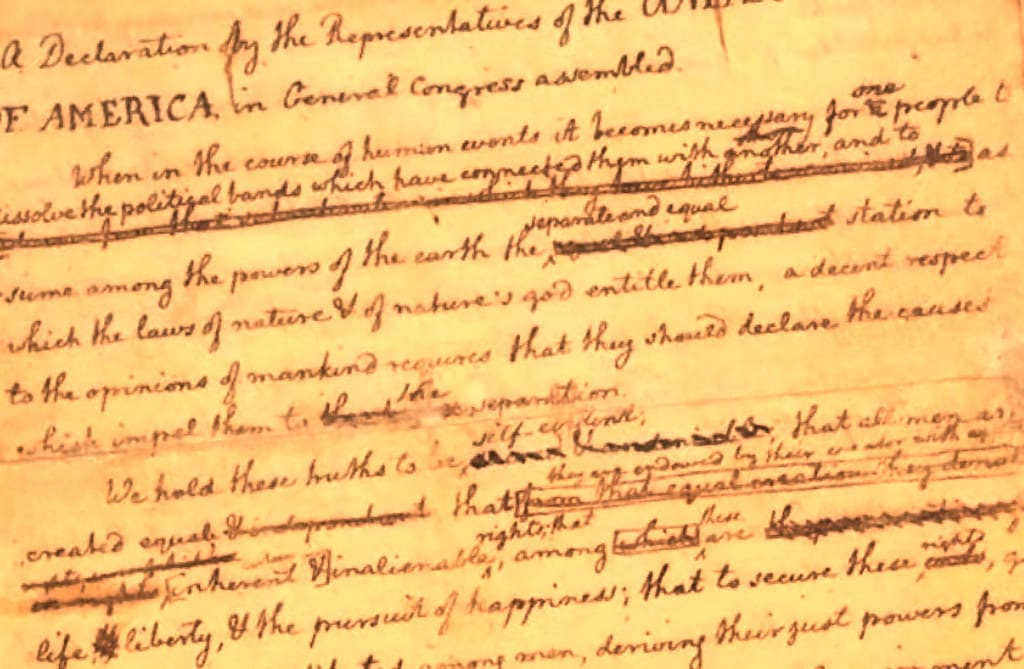 A Declaration by the Representatives of the UNITED
OF AMERICA, in General Congress assembled.
When in the course of human events it becomes necessary for one people t
issolve the political bands which have connected them with another, and to
as
separate and equal
sume among the powers of the earth the station to
which the laws of nature & of nature's god entitle them, a decent respect
to the opinions of mankind requires that they should declare the causes
which impel them to the separation.
self-evident;
We hold these truths to be that all men are
they are endowed by their creator with
created equal & independant that from that equal creation they
rights; that these
inherent & inalienable, among which are
rights
life, liberty, & the pursuit of happiness; that to secure these
among men, deriving their just powers from